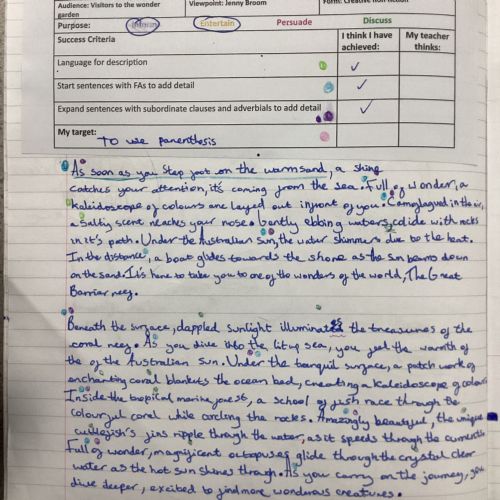 Audience: Visitors to the wonder garden
Viewpoint: Jenny Broom
Form: Creative non-fiction
Purpose: Inform Entertain Persuade Discuss
Success Criteria
I think I have achieved:
My teacher thinks:
Language for description
Start sentences with FAs to add detail
Expand sentences with subordinate clauses and adverbials to add detail
My target:
To use parenthesis
As soon as you step foot on the warm sand, a shine
catches your attention, it's coming from the sea. Full of wonder, a
kaleidoscope of colours are layed out infront of you. Camoflaged in the air,
a salty scent reaches your nose. Gently ebbing waters, colide with rocks
in it's path. Under the Australian Sun, the water shimmers due to the heat.
In the distance, a boat glides towards the shore as the sun beams down
on the sand. It's here to take you to one of the wonders of the world, The Great
Barrier reef.
Beneath the surface, dappled sunlight illuminates the treasures of the
coral reef. As you dive into the lit up sea, you feel the warmth of
the of the Australian sun. Under the tranquil surface, a patch work of
enchanting coral blankets the ocean bed, creating a kaleidoscope of colours
Inside the tropical marine forest, a school of fish race through the
colourful coral while circling the rocks. Amazingly beautiful, the unique
cuttlefish's fins ripple through the water, as it speeds through the currents.
Full of wonder, magnificent octopuses glide through the crystal clear
water as the hot sun shines through. As you carry on the journey, you
dive deeper, excited to find more wondurous creatures.